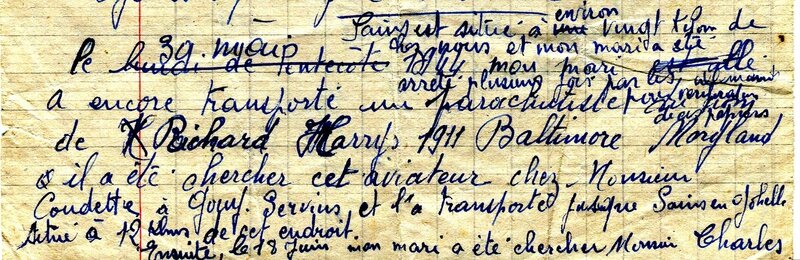 Sains est situé à environ vingt kilom de
chez nous et mon mari a été
Le 30 mai 1944 mon mari
arrêté plusieurs fois par les allemands
a encore transporté un parachutiste pour vérification
de papiers
de Richard Harrys 1911 Baltimore Maryland
il a été chercher cet aviateur chez Monsieur
Coudette à Gouy Servins et l'a transporté jusque Sains en Gohelle
situé à 12 kms de cet endroit.
Ensuite, le 18 Juin mon mari a été chercher Monsieur Charles